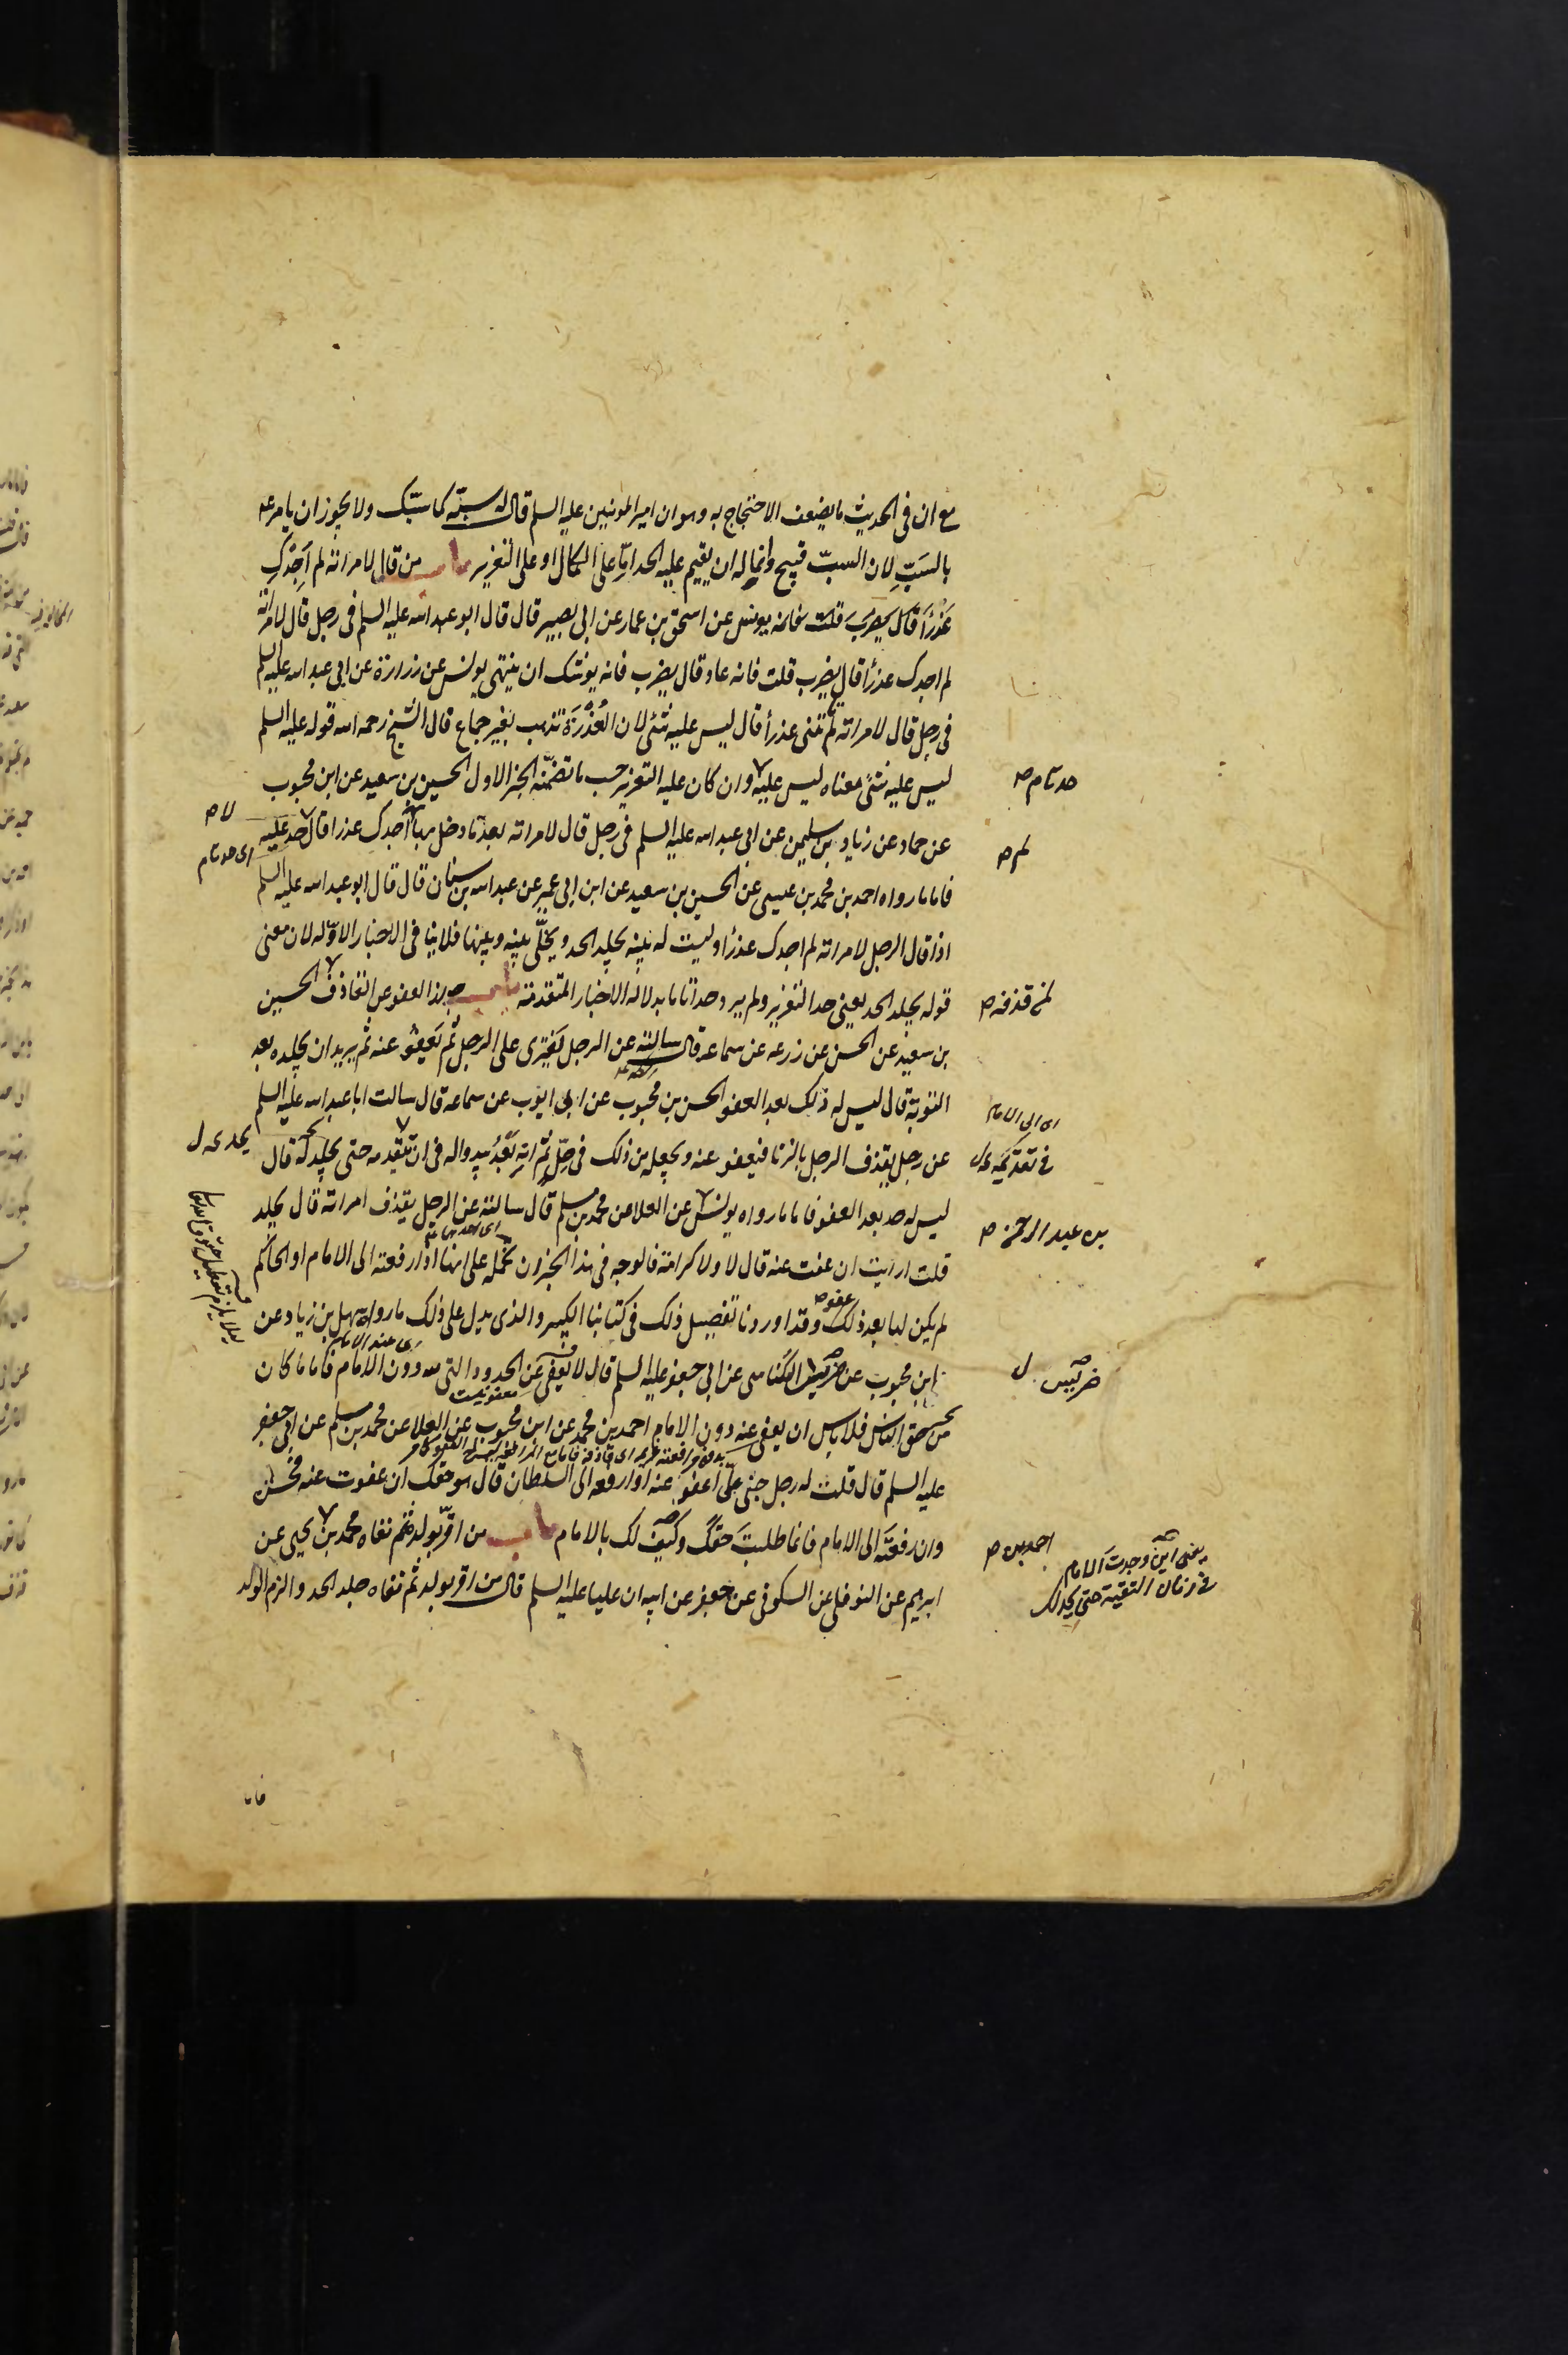 مع ان فى الحديث ما يضعف الاحتجاج به وهو ان امير المومنين عليه السلم قال له سبّه كما سبّك ولا يجوز ان يامر عه
بالسَبِّ لان السبّ قبيح وانما له ان يقيم عليه الحد امّا على الكمال او على التعزير باب من قال لامراته لم اَجِدْكِ
عَذْرَاَ قال يضرب قلت فانه يونس عن اسحق بن عمار عن ابى بصير قال قال ابو عبد الله عليه السلم فى رجل قال لامراته
لم اجدك عذرأ قال يضرب قلت فانه عاد قال يضرب فانه يوشك ان ينتهى يونس عن زرارة عن ابى عبد الله عليه السلم
فى رجل قال لامراته لم تتنى عذرأ قال ليس عليه شئ لان العُذْرَة تذهب بغير جماع قال الشيخ رحمه الله قوله عليه السلم
ليس عليه شئ معناه ليس عليه وان كان عليه التعزير حسب ما تضمّنه الخبر الاول الحسين بن سعيد عن ابن محبوب
حد تام ص
عن حماد عن زياد بن سليمن عن ابى عبد الله عليه السلم فى رجل قال لامراته بعد ما دخل بها اجدك عذرا قال حد عليه
لم ص
لا ص
اى حد تام
فاما ما رواه احمد بن محمد بن عيسى عن الحسين بن سعيد عن ابن ابى عمير عن عبد الله بن سنان قال قال ابو عبد الله عليه السلم
اذا قال الرجل لامراته لم اجدك عذرأ وليست له بينه يجلد الحد ويخلّى بينه وبينها فلا ينا فى الاخبار الاوّله لان معنى
قوله يجلد الحد يعنى حد التعزير ولم يرد حدا تاما بدلاله الاخبار المتقدمة باب جواز العفو عن القاذف الحسين
لمن قذفه ص
بن سعيد عن الحسن عن زرعه عن سماعه قال سالته عن الرجل يَفترى على الرجل ثم يَعفُو عنه ثم يريد ان يجلده بعد
التوبة قال ليس له ذلك بعد العفو الحسن بن محبوب عن ابى ايوب عن سماعه قال سالت ابا عبد الله عليه السلم
اى الى الامام
عن رجل يقذف الرجل بالزنا فيعفو عنه ويجعله من ذلك فى حِلّ ثم انه بَعْدُ يبدو اله فى ان يقدمه حتى يجلده قال
فى تقديمه
ليس له حد بعد العفو فاما ما رواه يونس عن العلا عن محمد بن مسلم قال سالته عن الرجل يقذف امراته قال يجلد
بن عبد الرحمن ص
قلت ارايت ان عفت عنه قال لا ولا كرامة فالوجه فى هذا الخبر ان نحمله على انها اذا رفعته الى الامام او الحاكم
لم يكن لها بعد ذلك عفو ص وقد اوردنا تفصيل ذلك فى كتابنا الكبير والذى يدل على ذلك ما رواه سهل بن زياد عن
اى عند الامام
ابن محبوب عن ضريس الكناسى عن ابى جعفر عليه السلم قال لا يعفى عن الحدود التى لله دون الامام فاما ما كان
ضريس ل
من حق الناس فلا باس ان يعفى عنه دون الامام احمد بن محمد عن ابن محبوب عن العلا عن محمد بن مسلم عن ابى جعفر
عليه السلم قال قلت له رجل جنى علىّ اعفو عنه او ارفعه الى السلطان قال هو حقك ان عفوت عنه فحسن
وان رفعته الى الامام فانما طلبتَ حقك وكيف لك بالامام باب من اقرّ بولد ثم نفاه محمد بن يحيى عن
احمد بن ص
يعنى اين وجدت الامام
فى زمان التقية حتى يحد لك
ابرهيم عن النوفلى عن السكونى عن جعفر عن ابيه ان عليا عليه السلم قال من اقر بولد ثم نفاه جلد الحد والزم الولد
فاما